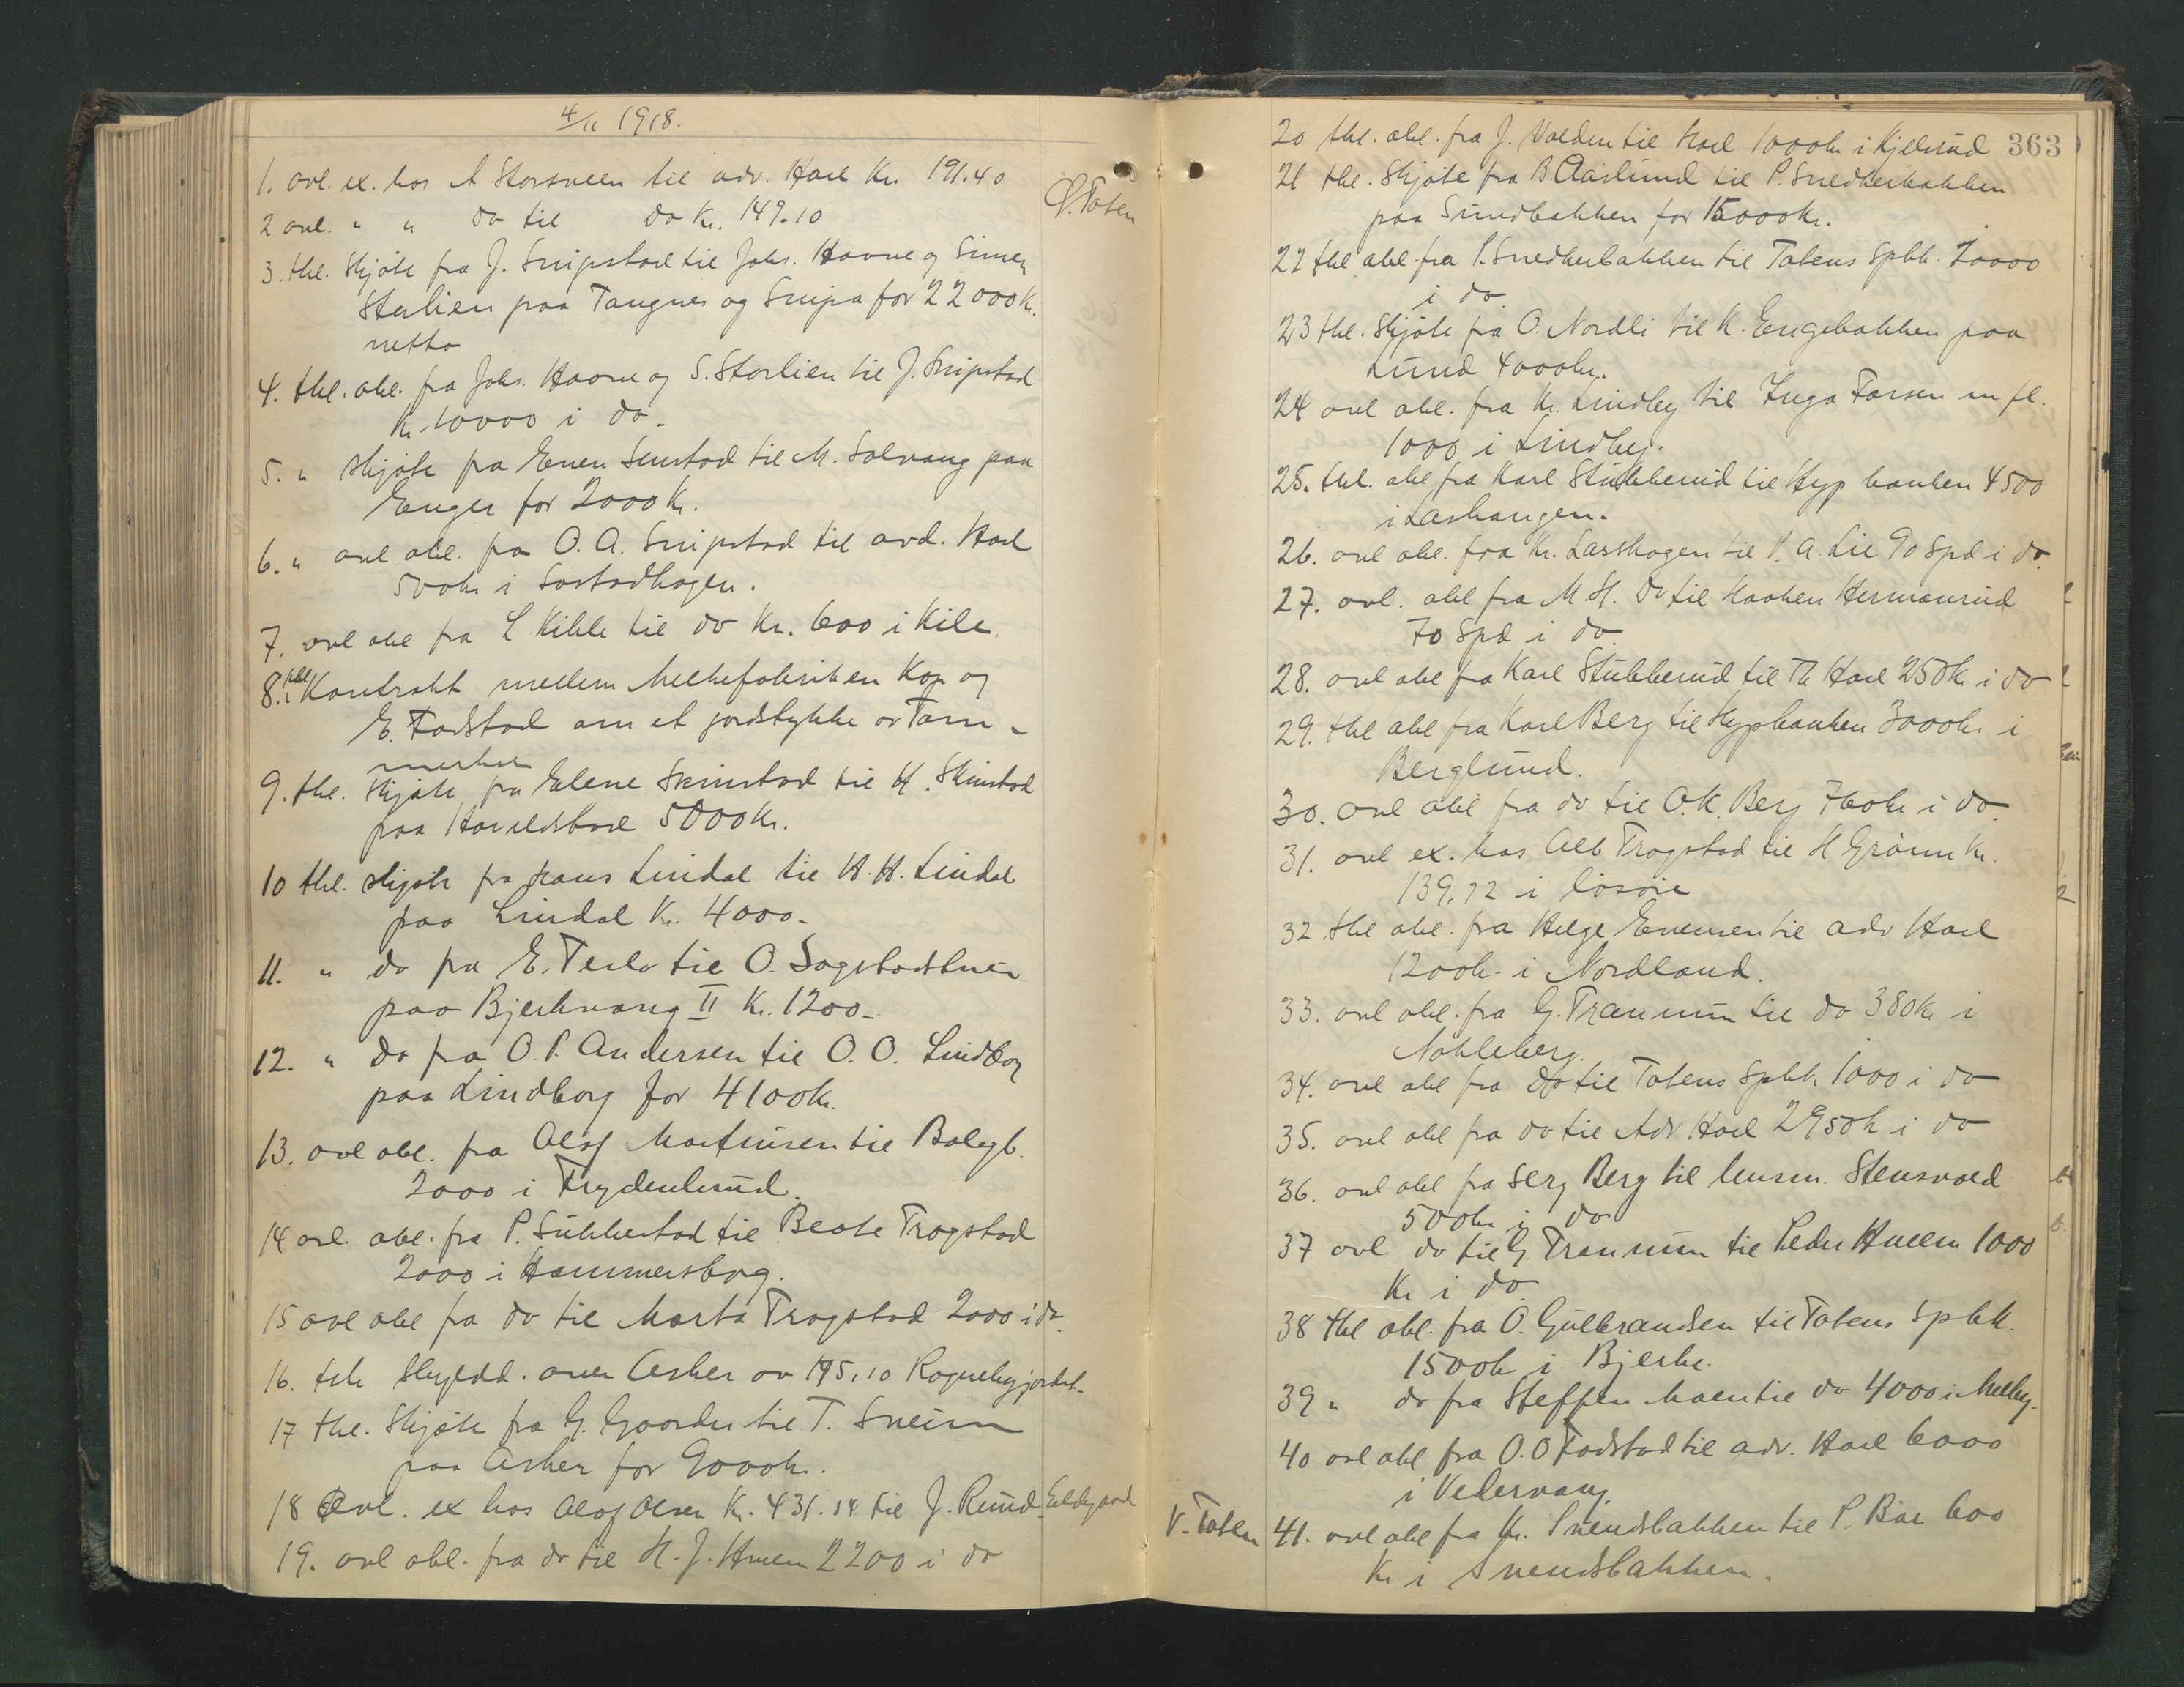 4/11 1918.
1. avl. ex. hos A Storsveen til adv. Hoel Kr. 191.40
Ø.Toten
2 avl. " " do til do Kr. 149.10
3. thl. Skjøte fra J. Snipstad til Johs. Hovne og Simen
Storlien paa Tangnes og Snipa for 22000 Kr.
netto
4. thl. obl. fra Johs. Hovne og S. Storlien til J. Snipstad
Kr. 10000 i do.
5. " skjøte fra Even Senstad til M. Solvang paa
Enger for 2000 Kr.
6. " avl obl. fra O. A. Snipstad til avd. Hoel
500kr i Sostadhagen.
7. avl obl fra L. Kihle til do Kr. 600 i Kile.
8. thl Kontrakt mellem Melkefabriken Kap og
E. Fodstad om et jordstykke av Tom-
merhol
9. thl. Skjøte fra Elene Skinstad til H. Skinstad
paa Haraldsbad 5000 Kr.
10 thl. skjøte fra Hans Lindal til H. H. Lindal
paa Lindal Kr. 4000.
11. " do fra E. Terlo til O. Sogstadstuen
paa Bjerkvang II Kr. 1200.
12. " do fra O. P. Andersen til O. O. Lindborg
paa Lindborg for 4100kr.
13. avl obl. fra Olaf Martinsen til Boligb.
2000 i Frydenlund.
14 avl. obl. fra P. Sukkestad til Beate Trogstad
2000 i Hammersborg.
15 avl obl fra do til Marta Trogstad 2000 i do.
16. thl Skyldd. over Asker av 195,10 Rognebyjordet.
17 thl. Skjøte fra G. Gaarder til T. Sveum
paa Asker for 9000kr.
18 avl. ex hos Olaf Olsen Kr. 431.54 til J. Rund-
19. avl obl. fra do til H. J. Hveem 2200 i do
363
20 thl. obl. fra J. Volden til Hoel 1000kr i Kjelsrud
21 thl. Skjøte fra B Aaslund til P. Snedkerbakken
paa Sundbakken for 15000kr.
22 thl obl. fra P. Snedkerbakken til Totens Spbk. 7000
i do
23 thl. Skjøte fra O. Nordli til K. Engebakken paa
Lund 4000kr.
24 avl obl. fra Kr. Lindby til Inga Larsen m fl.
1000 i Lindby.
25. thl. obl fra Karl Stubberud til Hyp banken 4500
i Lashaugen.
26. avl obl. fra Kr. Lasshagen til P. A. Lie 90 Spd i do.
27. avl. obl fra M. H. do til Haaken Hermanrud
70 Spd i do.
28. avl obl fra Karl Stubberud til Th Hoel 250kr i do
29. thl obl fra Karl Berg til Hypbanken 3000kr i
Berglund.
30. avl obl fra do til O. K. Berg 760kr i do.
31. avl ex. hos Alb Trogstad til H Grønn Kr.
139,72 i løsøre
32. thl obl. fra Helge Evensen til adv Hoel
1200kr i Nordland.
33. avl obl. fra G. Tranum til do 380kr i
Nøkleberg.
34. avl obl fra do til Totens Spbk. 1000 i do
35. avl obl fra do til Adv Hoel 2950kr i do
36. avl obl fra Serg Berg til lensm. Stensvold
500kr i do
37 avl do til G. Tranum til Peder Hveem 1000
Kr i do
38 thl obl. fra O. Gulbrandsen til Totens Spbk.
1500kr i Bjerke.
39 " do fra Steffen Moen til do 4000 i Melby.
40 avl obl fra O. O Fodstad til adv. Hoel 6000
i Vedervang
V. Toten
41. avl obl fra Kr. Svendsbakken til P. Bøe 600
Kr i Svendsbakken.